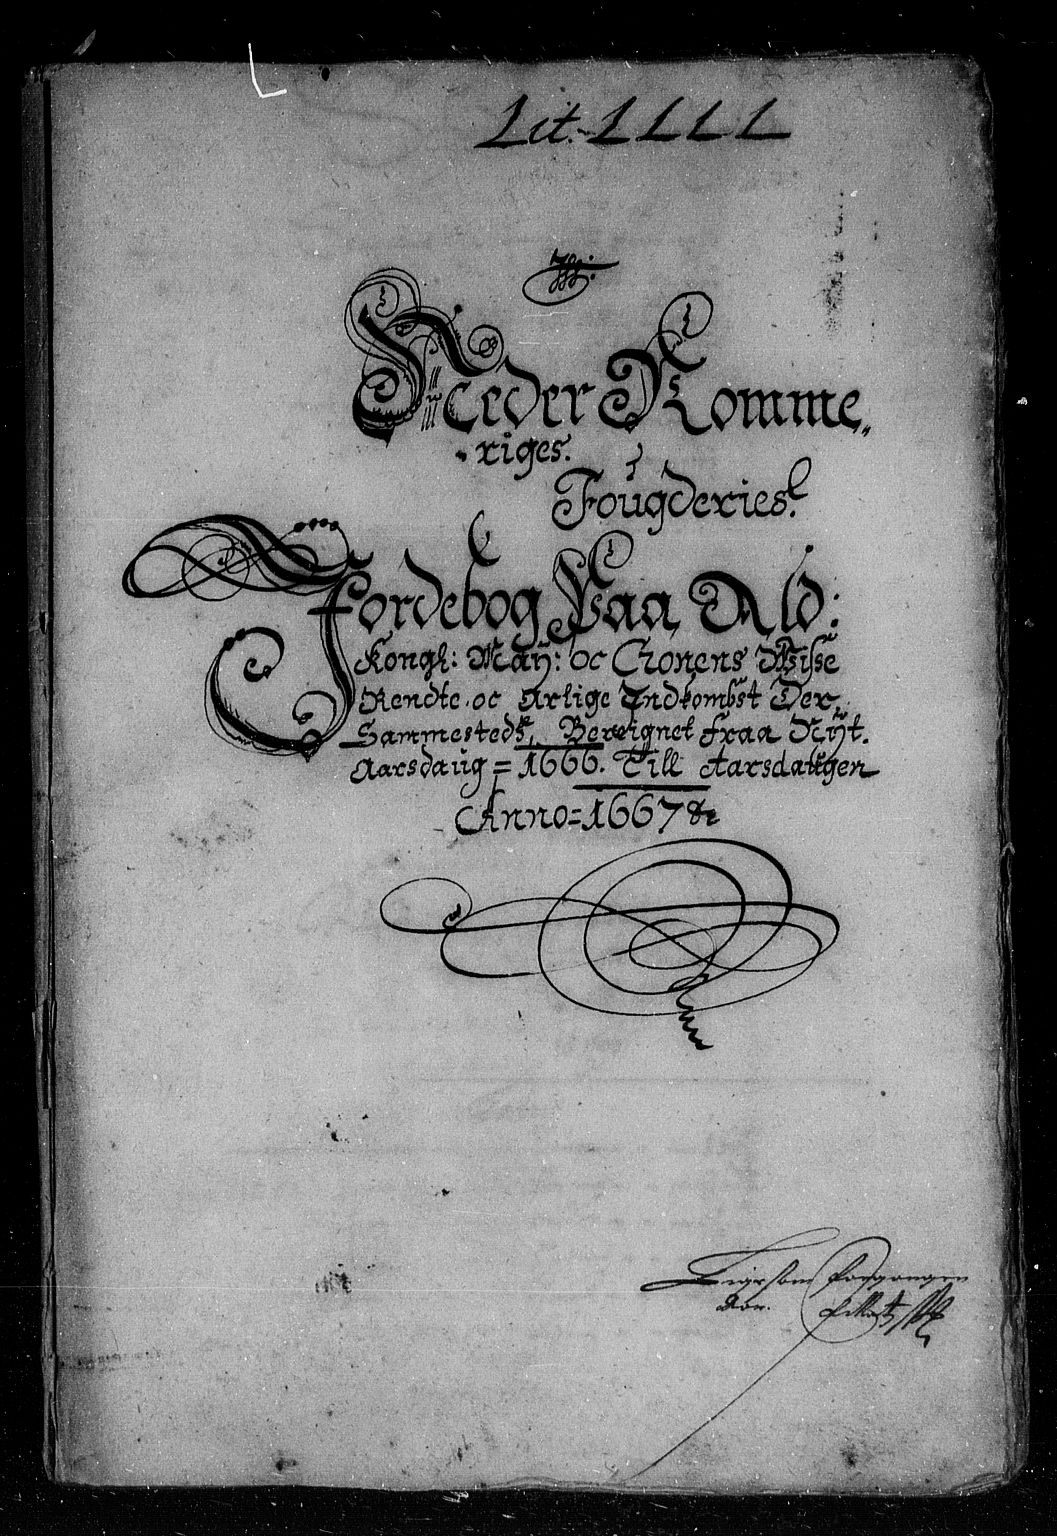 Lit. LLLL
Neder Romme„
riges.
Fougderies.
Jordebog Paa Ald:
Kongl: Maÿ: oc Cronens Wisse
Rendte oc Arlige Indkombst Der
Sammesteds, Bereignet fraa Nÿt.
Aarsdaug = 1666. Till Aarsdaugen
Anno = 1667 &c